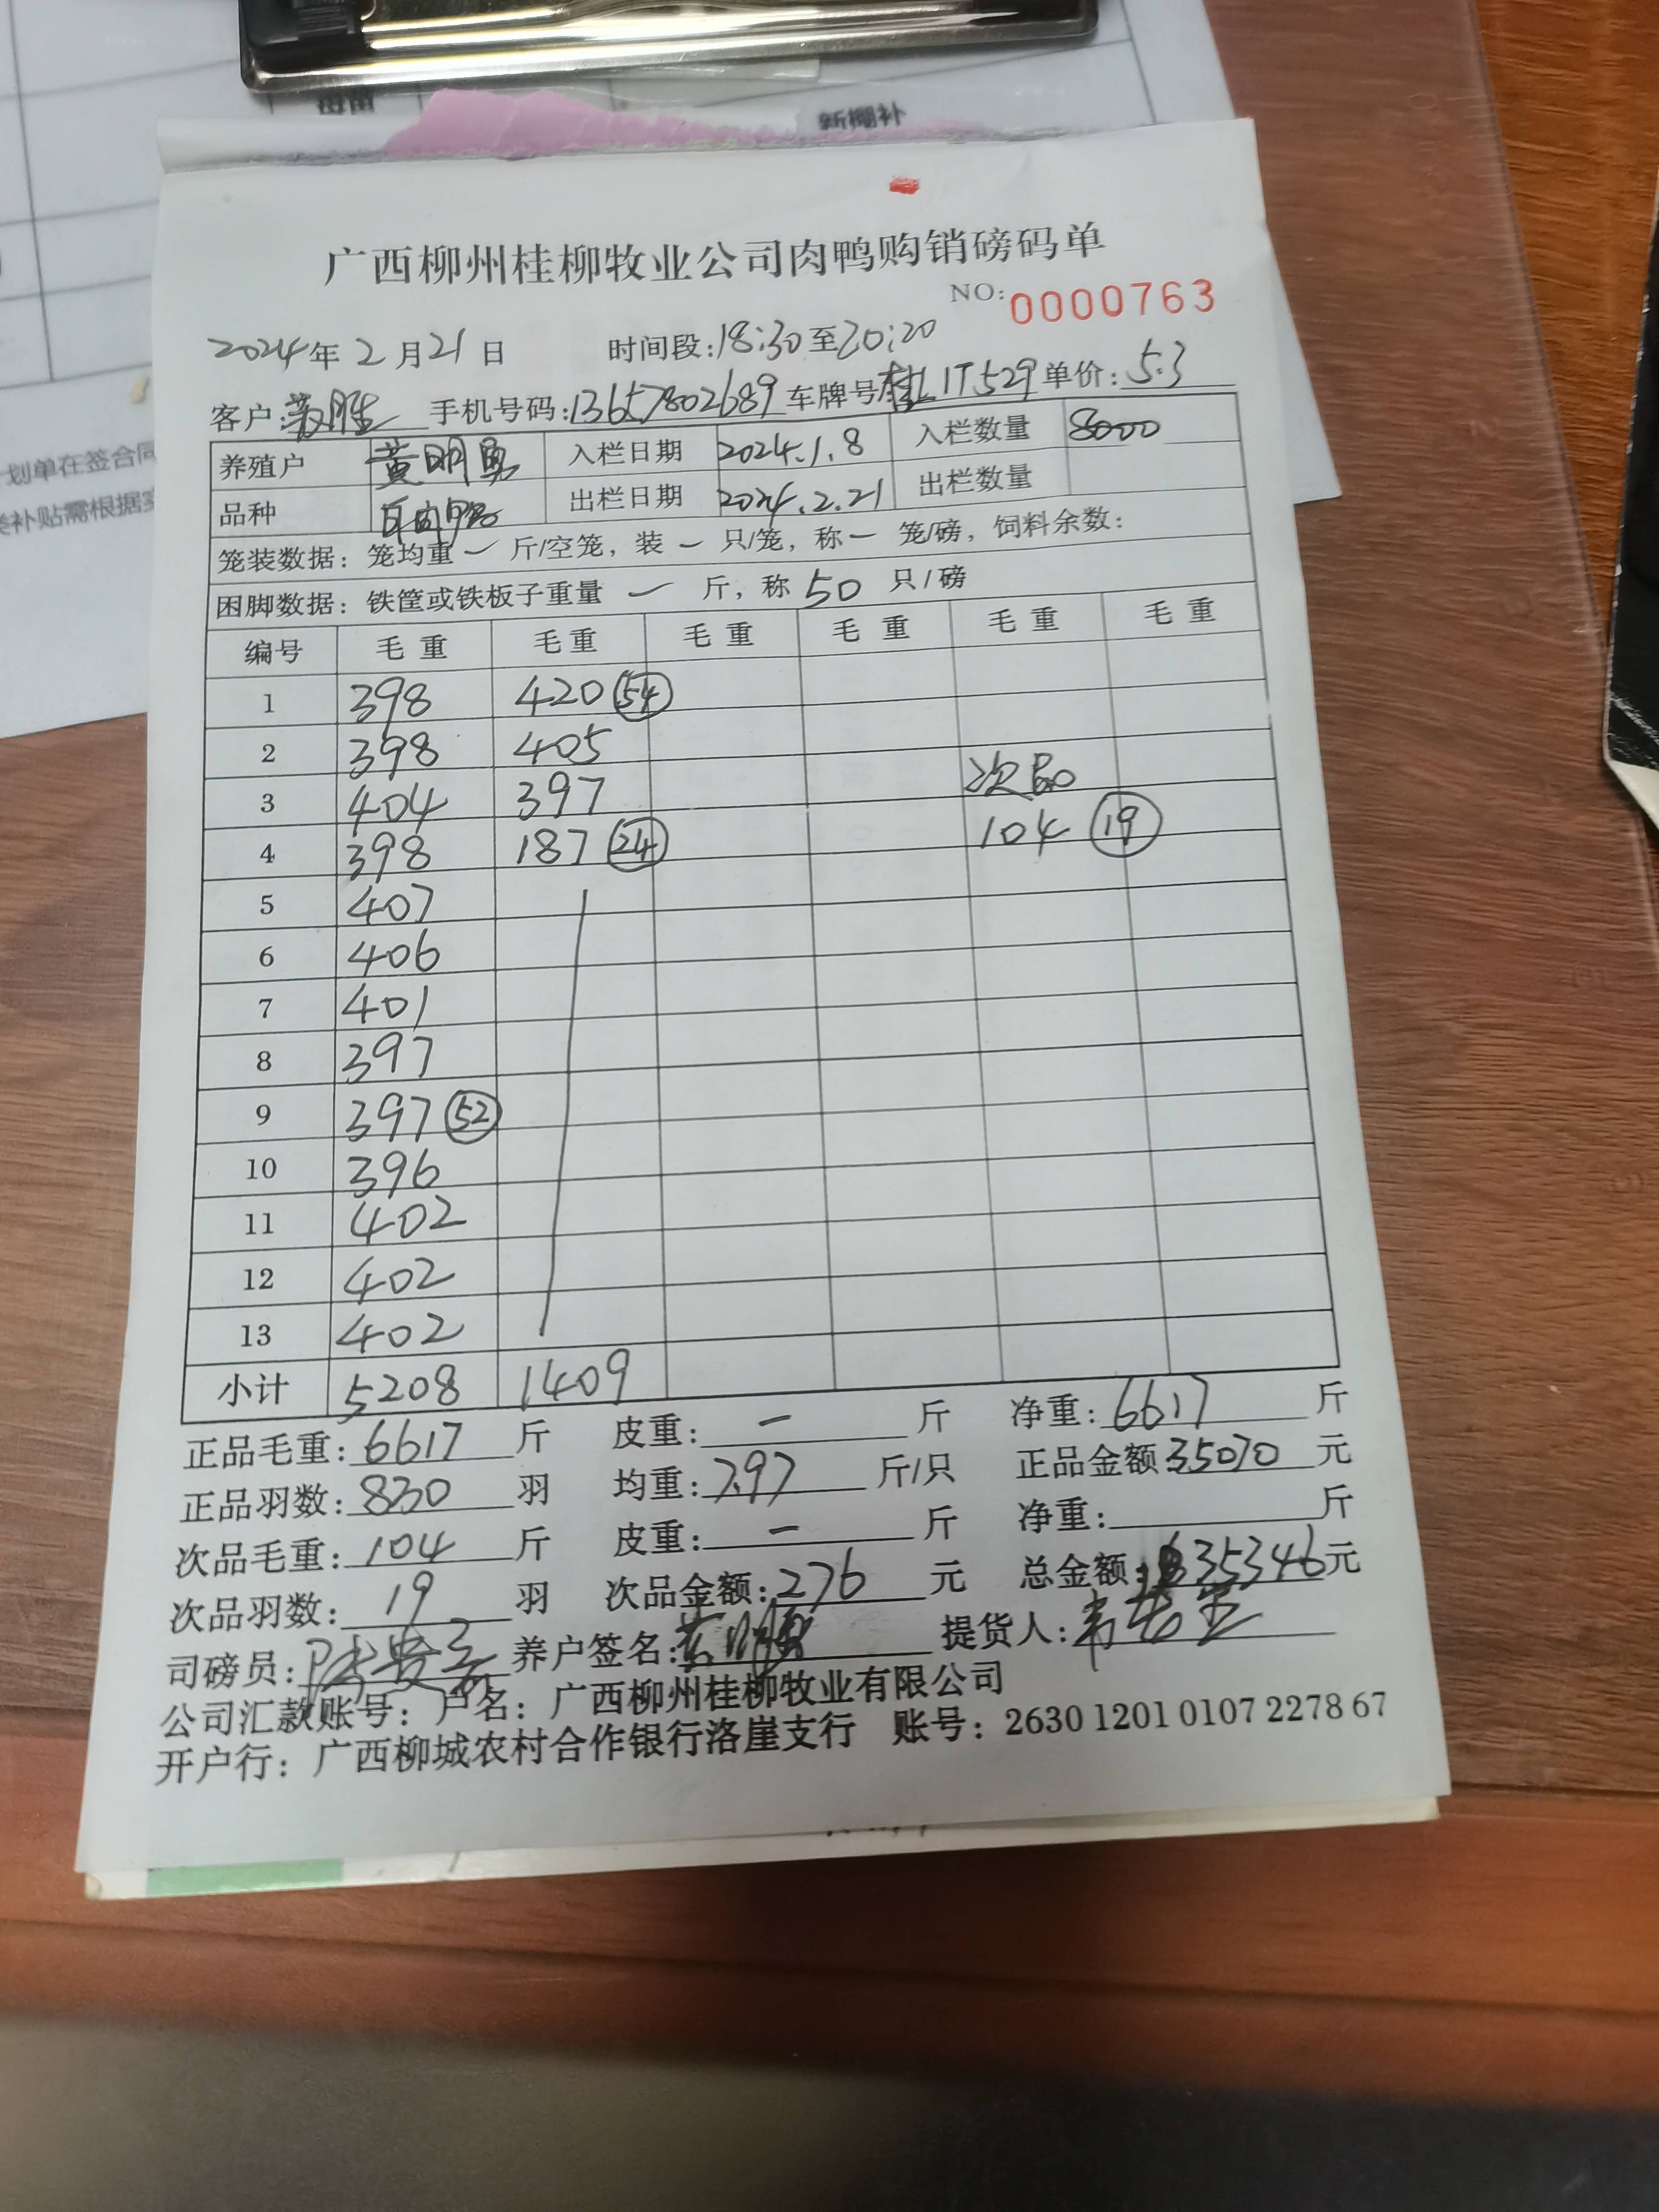 新棚补
划单在签合同
类补贴需根据实
广西柳州桂柳牧业公司肉鸭购销磅码单
NO: 0000763
2024年2月21日 时间段:18:30至20:20
客户: 手机号码:13657802689 车牌号桂L1T529 单价:5.3
养殖户 黄明勇 入栏日期 2024.1.8 入栏数量 8000
品种 出栏日期 2024.2.21 出栏数量
笼装数据：笼均重 一 斤/空笼，装 一 只/笼，称 一 笼/磅，饲料余数：
困脚数据：铁筐或铁板子重量 一 斤，称 50 只/磅
编号 毛重 毛重 毛重 毛重 毛重 毛重
1 398 420 54
2 398 405 次品
3 404 397
4 398 187 24 104 19
5 407
6 406
7 401
8 397
9 397 52
10 396
11 402
12 402
13 402
小计 5208 1409
正品毛重:6617斤 皮重:一斤 净重:6617斤
正品羽数:830羽 均重:7.97斤/只 正品金额35070元
次品毛重:104斤 皮重:一斤 净重:斤
次品羽数:19羽 次品金额:276元 总金额:35346元
司磅员: 养户签名: 提货人:
公司汇款账号：户名：广西柳州桂柳牧业有限公司
开户行：广西柳城农村合作银行洛崖支行 账号：2630 1201 0107 2278 67